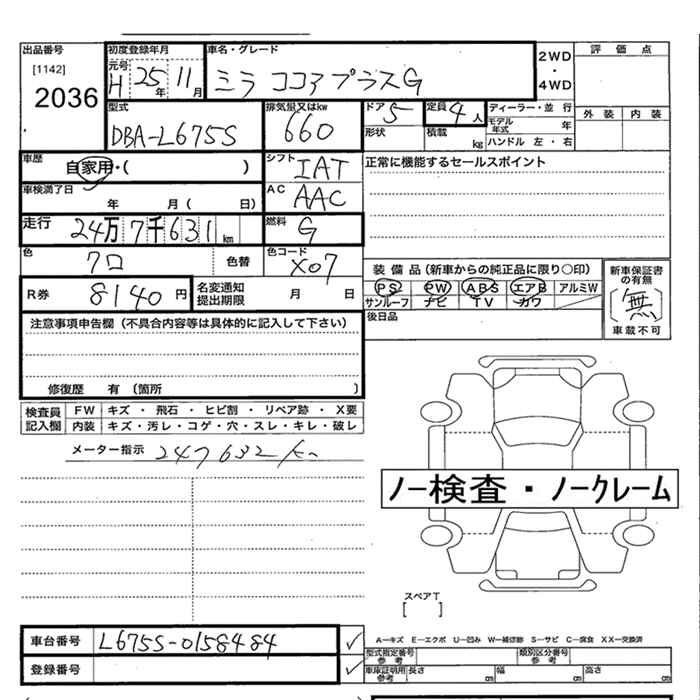 出品番号
[1142]
2036
初度登録年月
元号
H 25年 11月
車名・グレード
ミラ ココアプラスG
2WD
・
4WD
評価点
外装 内装
型式
DBA-L675S
排気量又はkw
660
ドア 5
形状
定員 4人
積載 kg
ディーラー・並行
モデル年式 年
ハンドル 左・右
車歴
自家用・( )
シフト
IAT
正常に機能するセールスポイント
車検満了日
年 月 ( 日)
AC
AAC
走行
24万7千631km
燃料
G
色
クロ
色替
色コード
X07
装備品(新車からの純正品に限り○印)
PS PW ABS エアB アルミW
サンルーフ ナビ TV カワ
新車保証書の有無
〔無〕
車載不可
R券 8140円
名変通知
提出期限
月 日
後日品
注意事項申告欄(不具合内容等は具体的に記入して下さい)
修復歴 有 (箇所 )
検査員記入欄
FW キズ・飛石・ヒビ割・リペア跡・X要
内装 キズ・汚レ・コゲ・穴・スレ・キレ・破レ
メーター指示 247632km
ノー検査・ノークレーム
スペアT
[ ]
車台番号 L675S-0158484 ✓
登録番号 ✓
A-キズ E-エクボ U-凹み W-補修跡 S-サビ C-腐食 XX-交換済
型式指定番号
参考
類別区分番号
参考
車庫証明用
参考
長さ cm 幅 cm 高さ cm